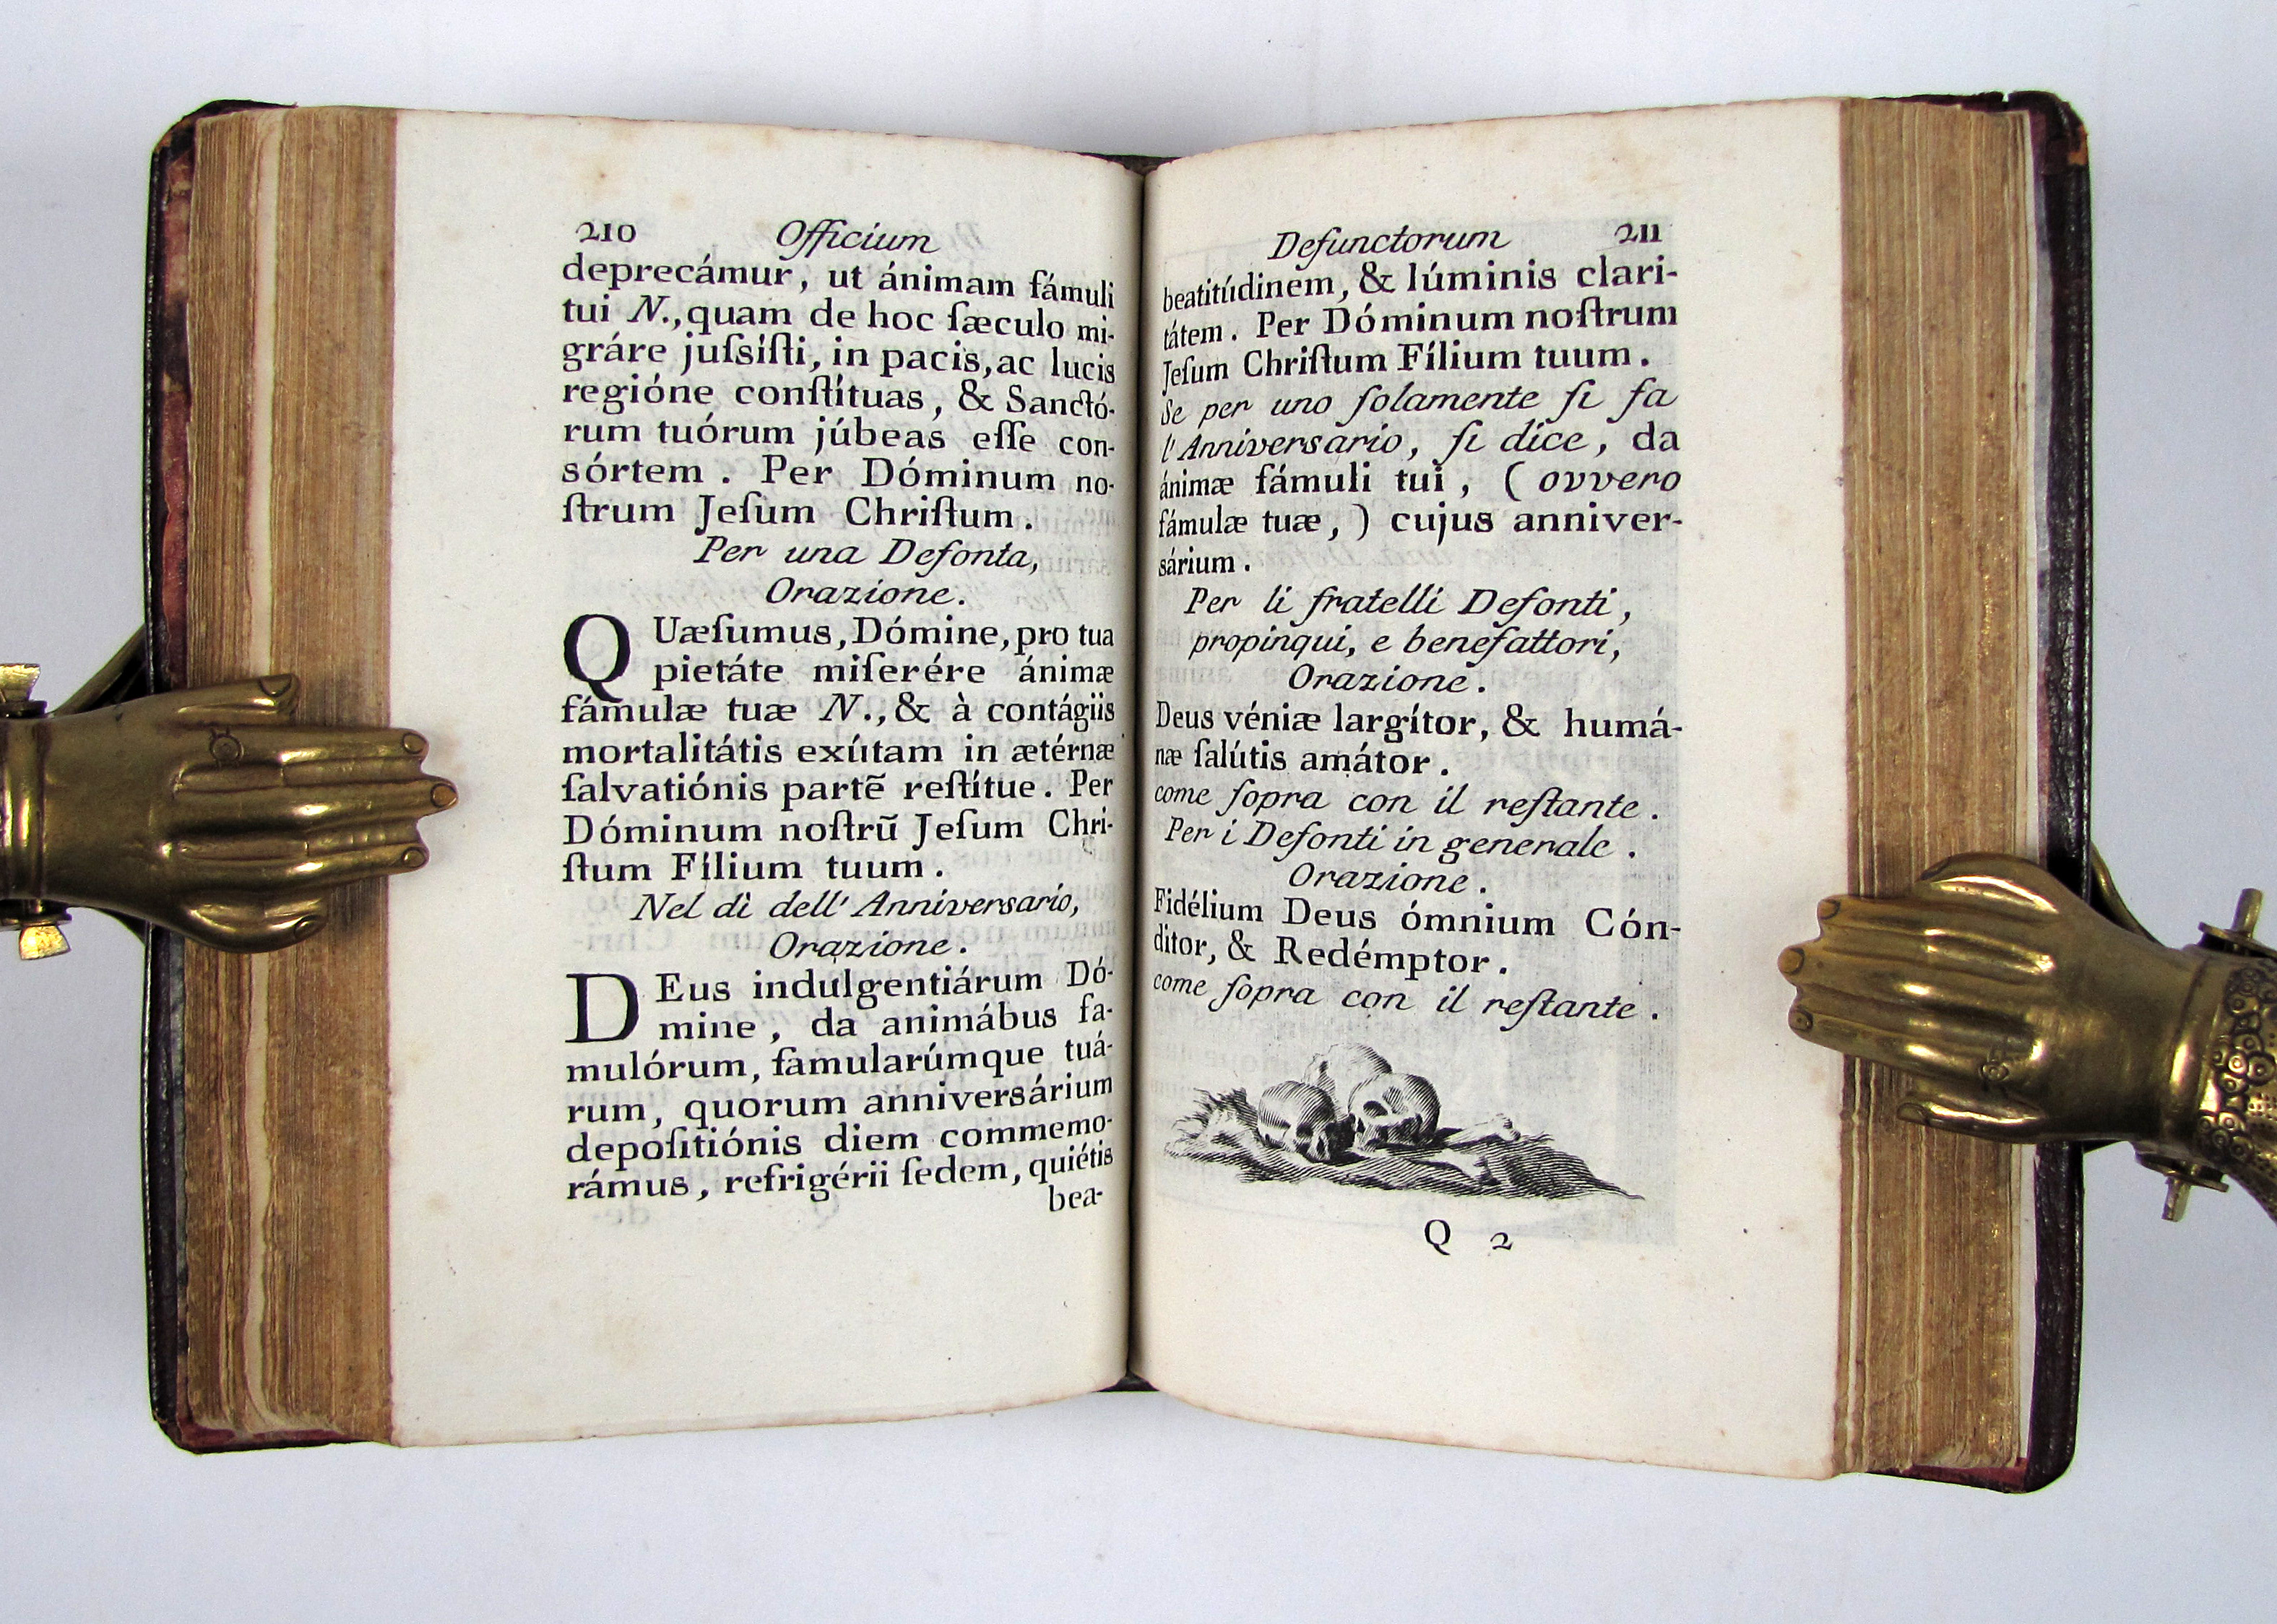 210 Officium
deprecámur, ut ánimam fámuli
tui N., quam de hoc ſæculo mi-
gráre juſsíſti, in pacis, ac lucis
regióne conſtítuas, & Sanctó-
rum tuórum júbeas eſſe con-
sórtem. Per Dóminum no-
ſtrum Jeſum Chriſtum.
Per una Defonta,
Orazione.
QUæſumus, Dómine, pro tua
pietáte miſerére ánimæ
fámulæ tuæ N., & à contágiis
mortalitátis exútam in ætérnæ
ſalvatiónis partẽ reſtítue. Per
Dóminum noſtrũ Jeſum Chri-
ſtum Fílium tuum.
Nel dì dell' Anniversario,
Orazione.
DEus indulgentiárum Dó-
mine, da animábus fa-
mulórum, famularúmque tuá-
rum, quorum anniversárium
depoſitiónis diem commemo-
rámus, refrigérii ſedem, quiétis
bea-
Defunctorum 211
beatitúdinem, & lúminis clari-
tátem. Per Dóminum noſtrum
Jeſum Chriſtum Fílium tuum.
Se per uno ſolamente ſi fa
l'Anniversario, ſi dice, da
ánimæ fámuli tui, (ovvero
fámulæ tuæ,) cujus anniver-
sárium.
Per li fratelli Defonti,
propinqui, e benefattori,
Orazione.
Deus véniæ largítor, & humá-
næ ſalútis amátor.
come ſopra con il reſtante.
Per i Defonti in generale.
Orazione.
Fidélium Deus ómnium Cón-
ditor, & Redémptor.
come ſopra con il reſtante.
Q 2